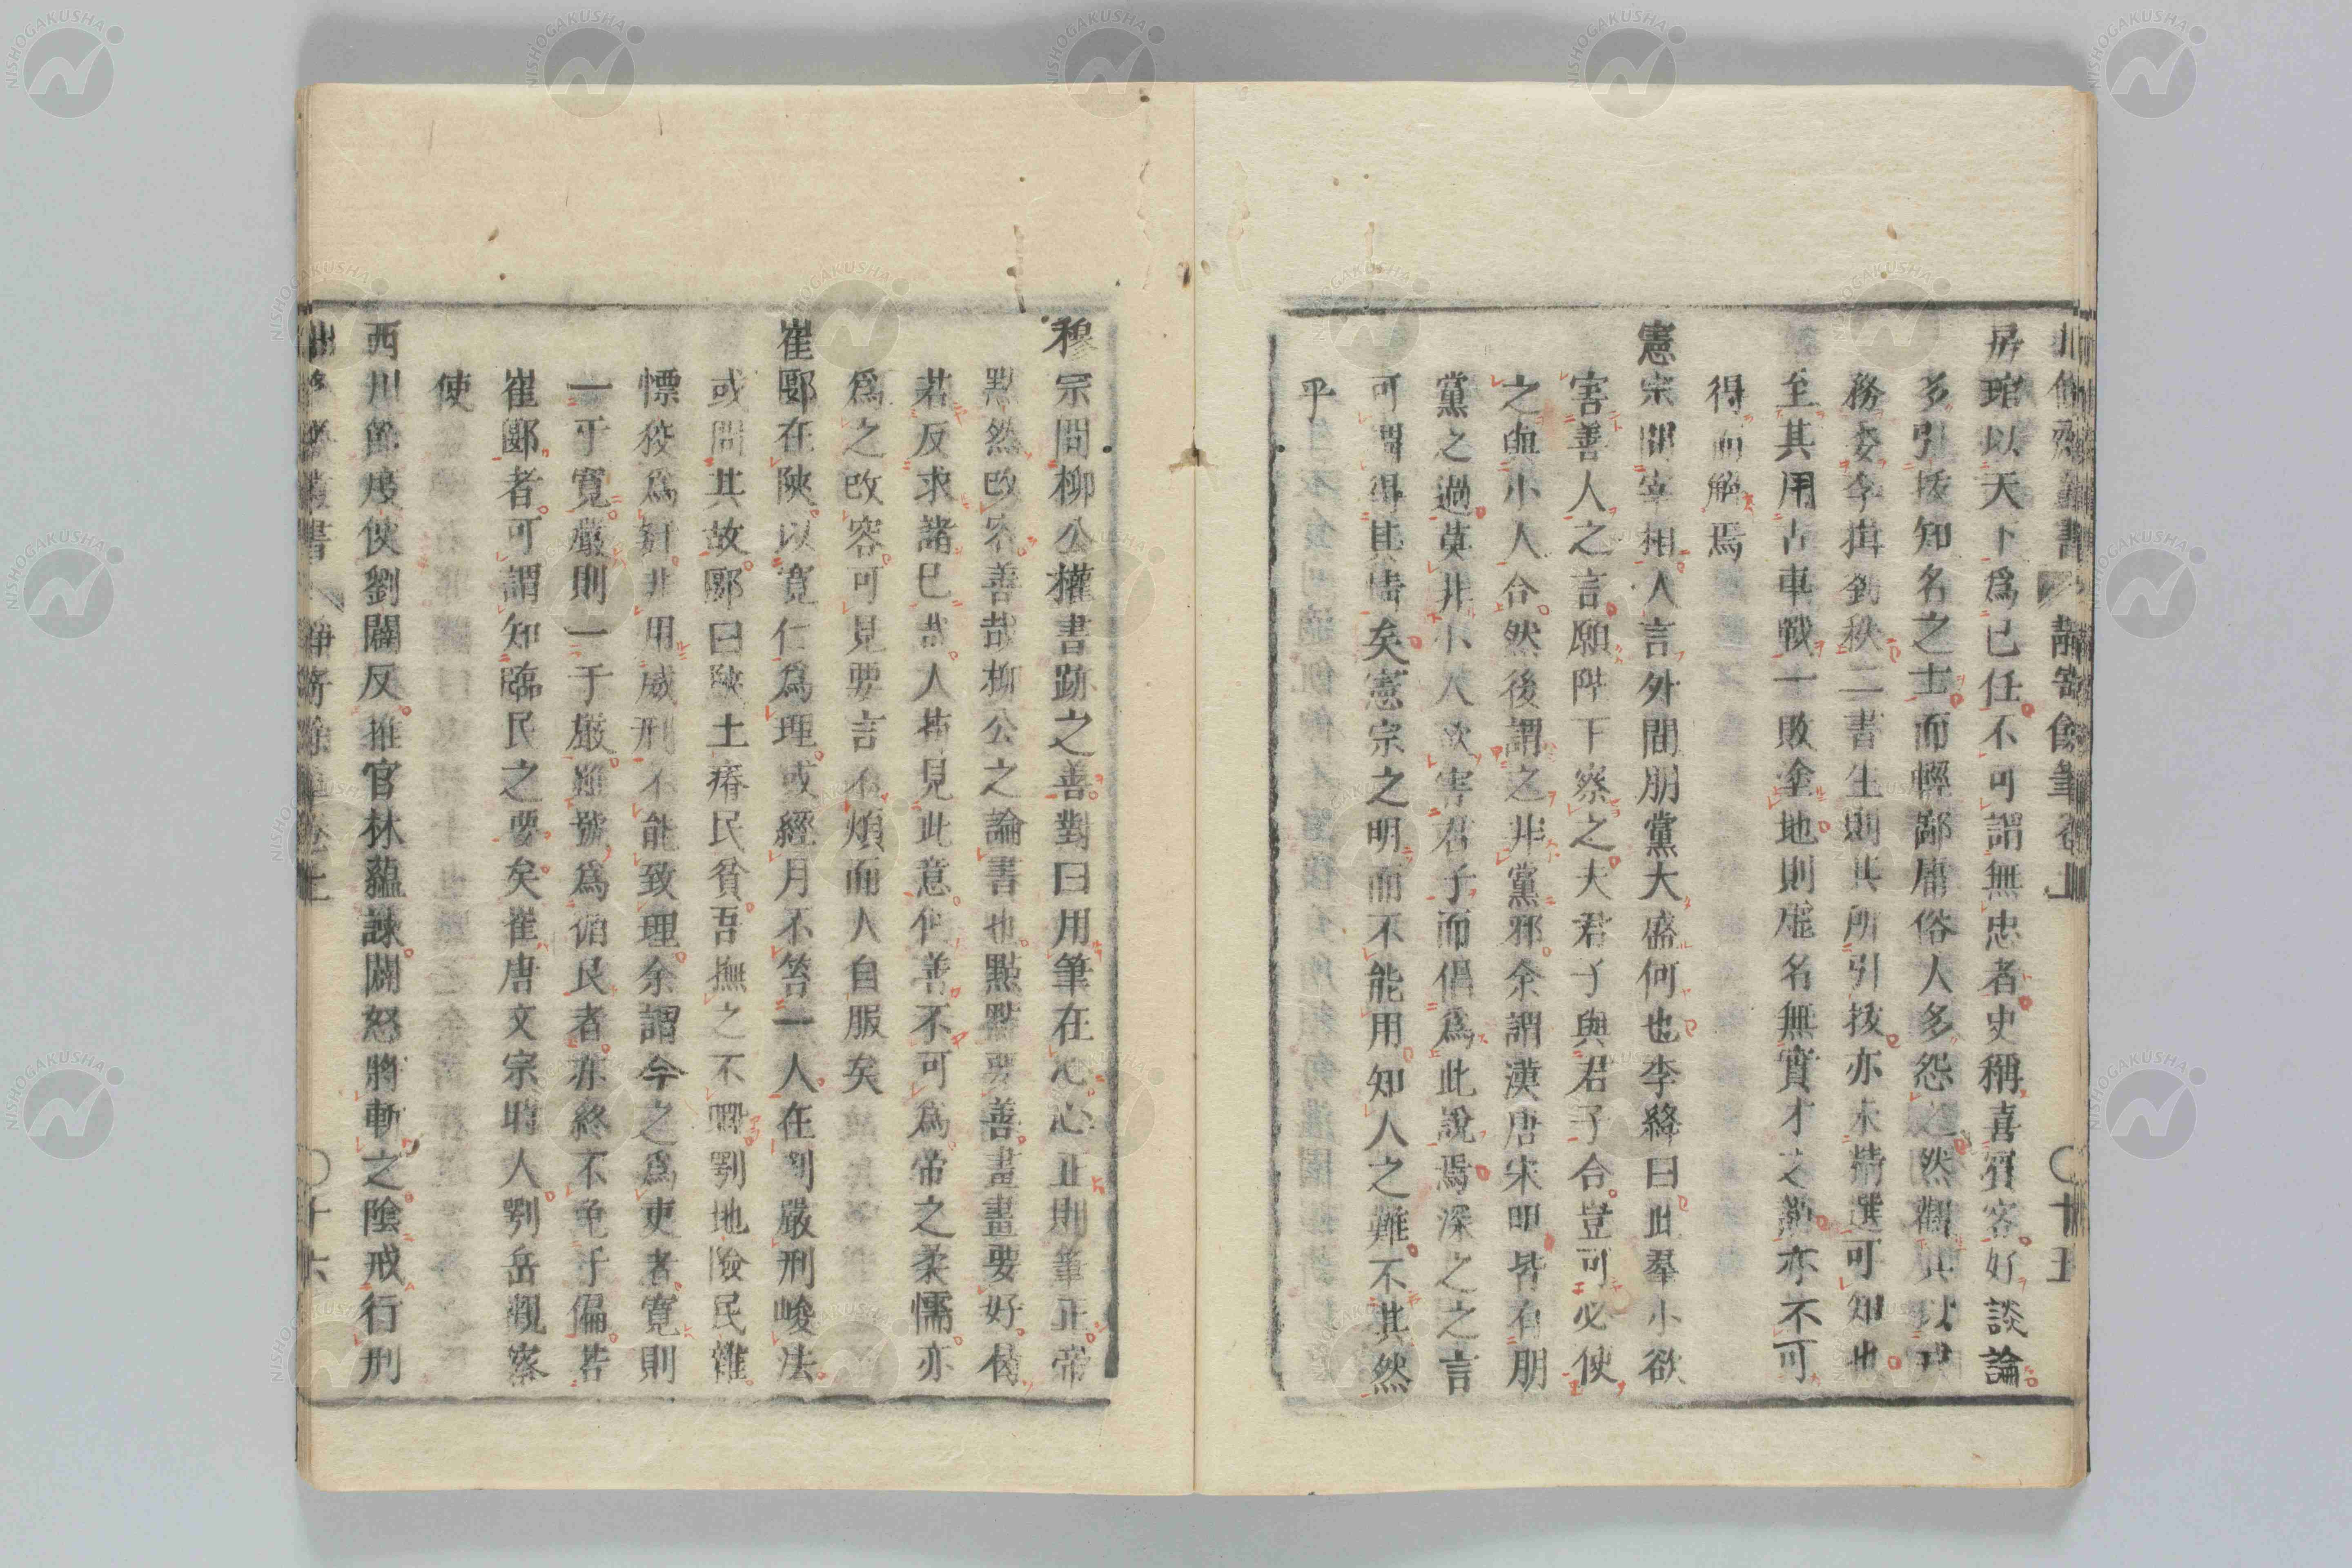 房琯以天下爲已任不可謂無忠者史稱喜賓客好談論
多引拔知名之士而輕鄙庸俗人多怨之然觀其以戎
務委李揖劉秩二書生則其所引拔亦未精選可知也
至其用古車戰一敗塗地則虛名無實才之謝亦不可
得而解焉
憲宗問宰相人言外間朋黨大盛何也李絳曰此羣小欲
害善人之言願陛下察之夫君子與君子合豈可必使
之與小人合然後謂之非黨邪余謂漢唐宋明皆有朋
黨之過莫非小人欲害君子而倡爲此說焉深之之言
可謂得其情矣憲宗之明而不能用知人之難不其然
乎
十五
穆宗問柳公權書跡之善對曰用筆在心心正則筆正帝
默然改容善哉柳公之論書也點點要善畫畫要好倘
若反求諸已哉人苟見此意但善不可爲帝之柔懦亦
爲之改容可見要言不煩而人自服矣
崔郾在陝以寬仁爲理或經月不笞一人在鄂嚴刑峻法
或問其故郾曰陝土瘠民貧吾撫之不暇鄂地險民雜
慓狡爲奸非用威刑不能致理余謂今之爲吏者寬則
一于寬嚴則一于嚴雖號爲循良者亦終不免于偏若
崔郾者可謂知臨民之要矣崔唐文宗時人鄂岳觀察
使
西川節度使劉闢反推官林蘊諫闢怒將斬之陰戒行刑
十六
NISHOGAKUSHA